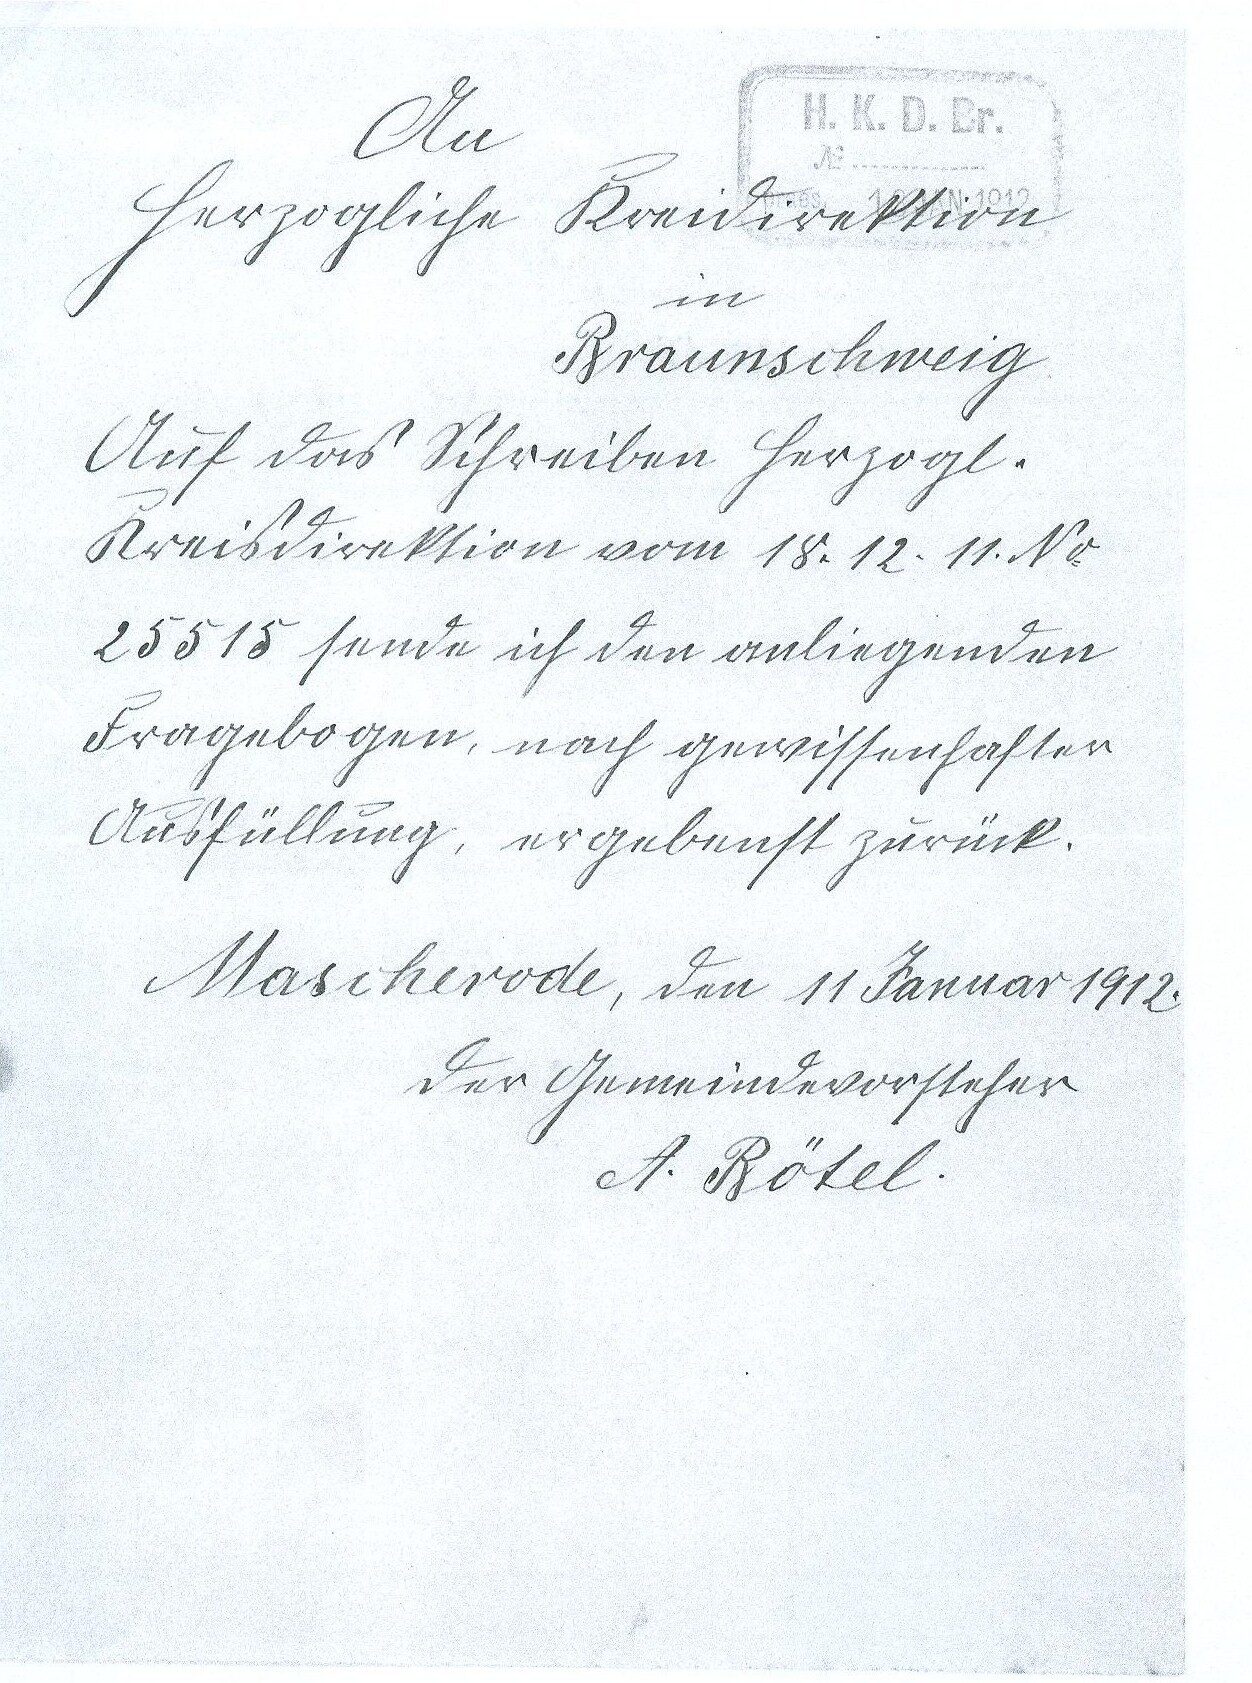 H. K. D. Br.
№
praes. JAN. 1912
An
Herzogliche Kreidirektion
in
Braunschweig
Auf das Schreiben Herzogl.
Kreisdirektion vom 18. 12. 11. No
25515 sende ich den anliegenden
Fragebogen, nach gewissenhafter
Ausfüllung, ergebenst zurück.
Mascherode, den 11 Januar 1912.
Der Gemeindevorsteher
A. Rötel.